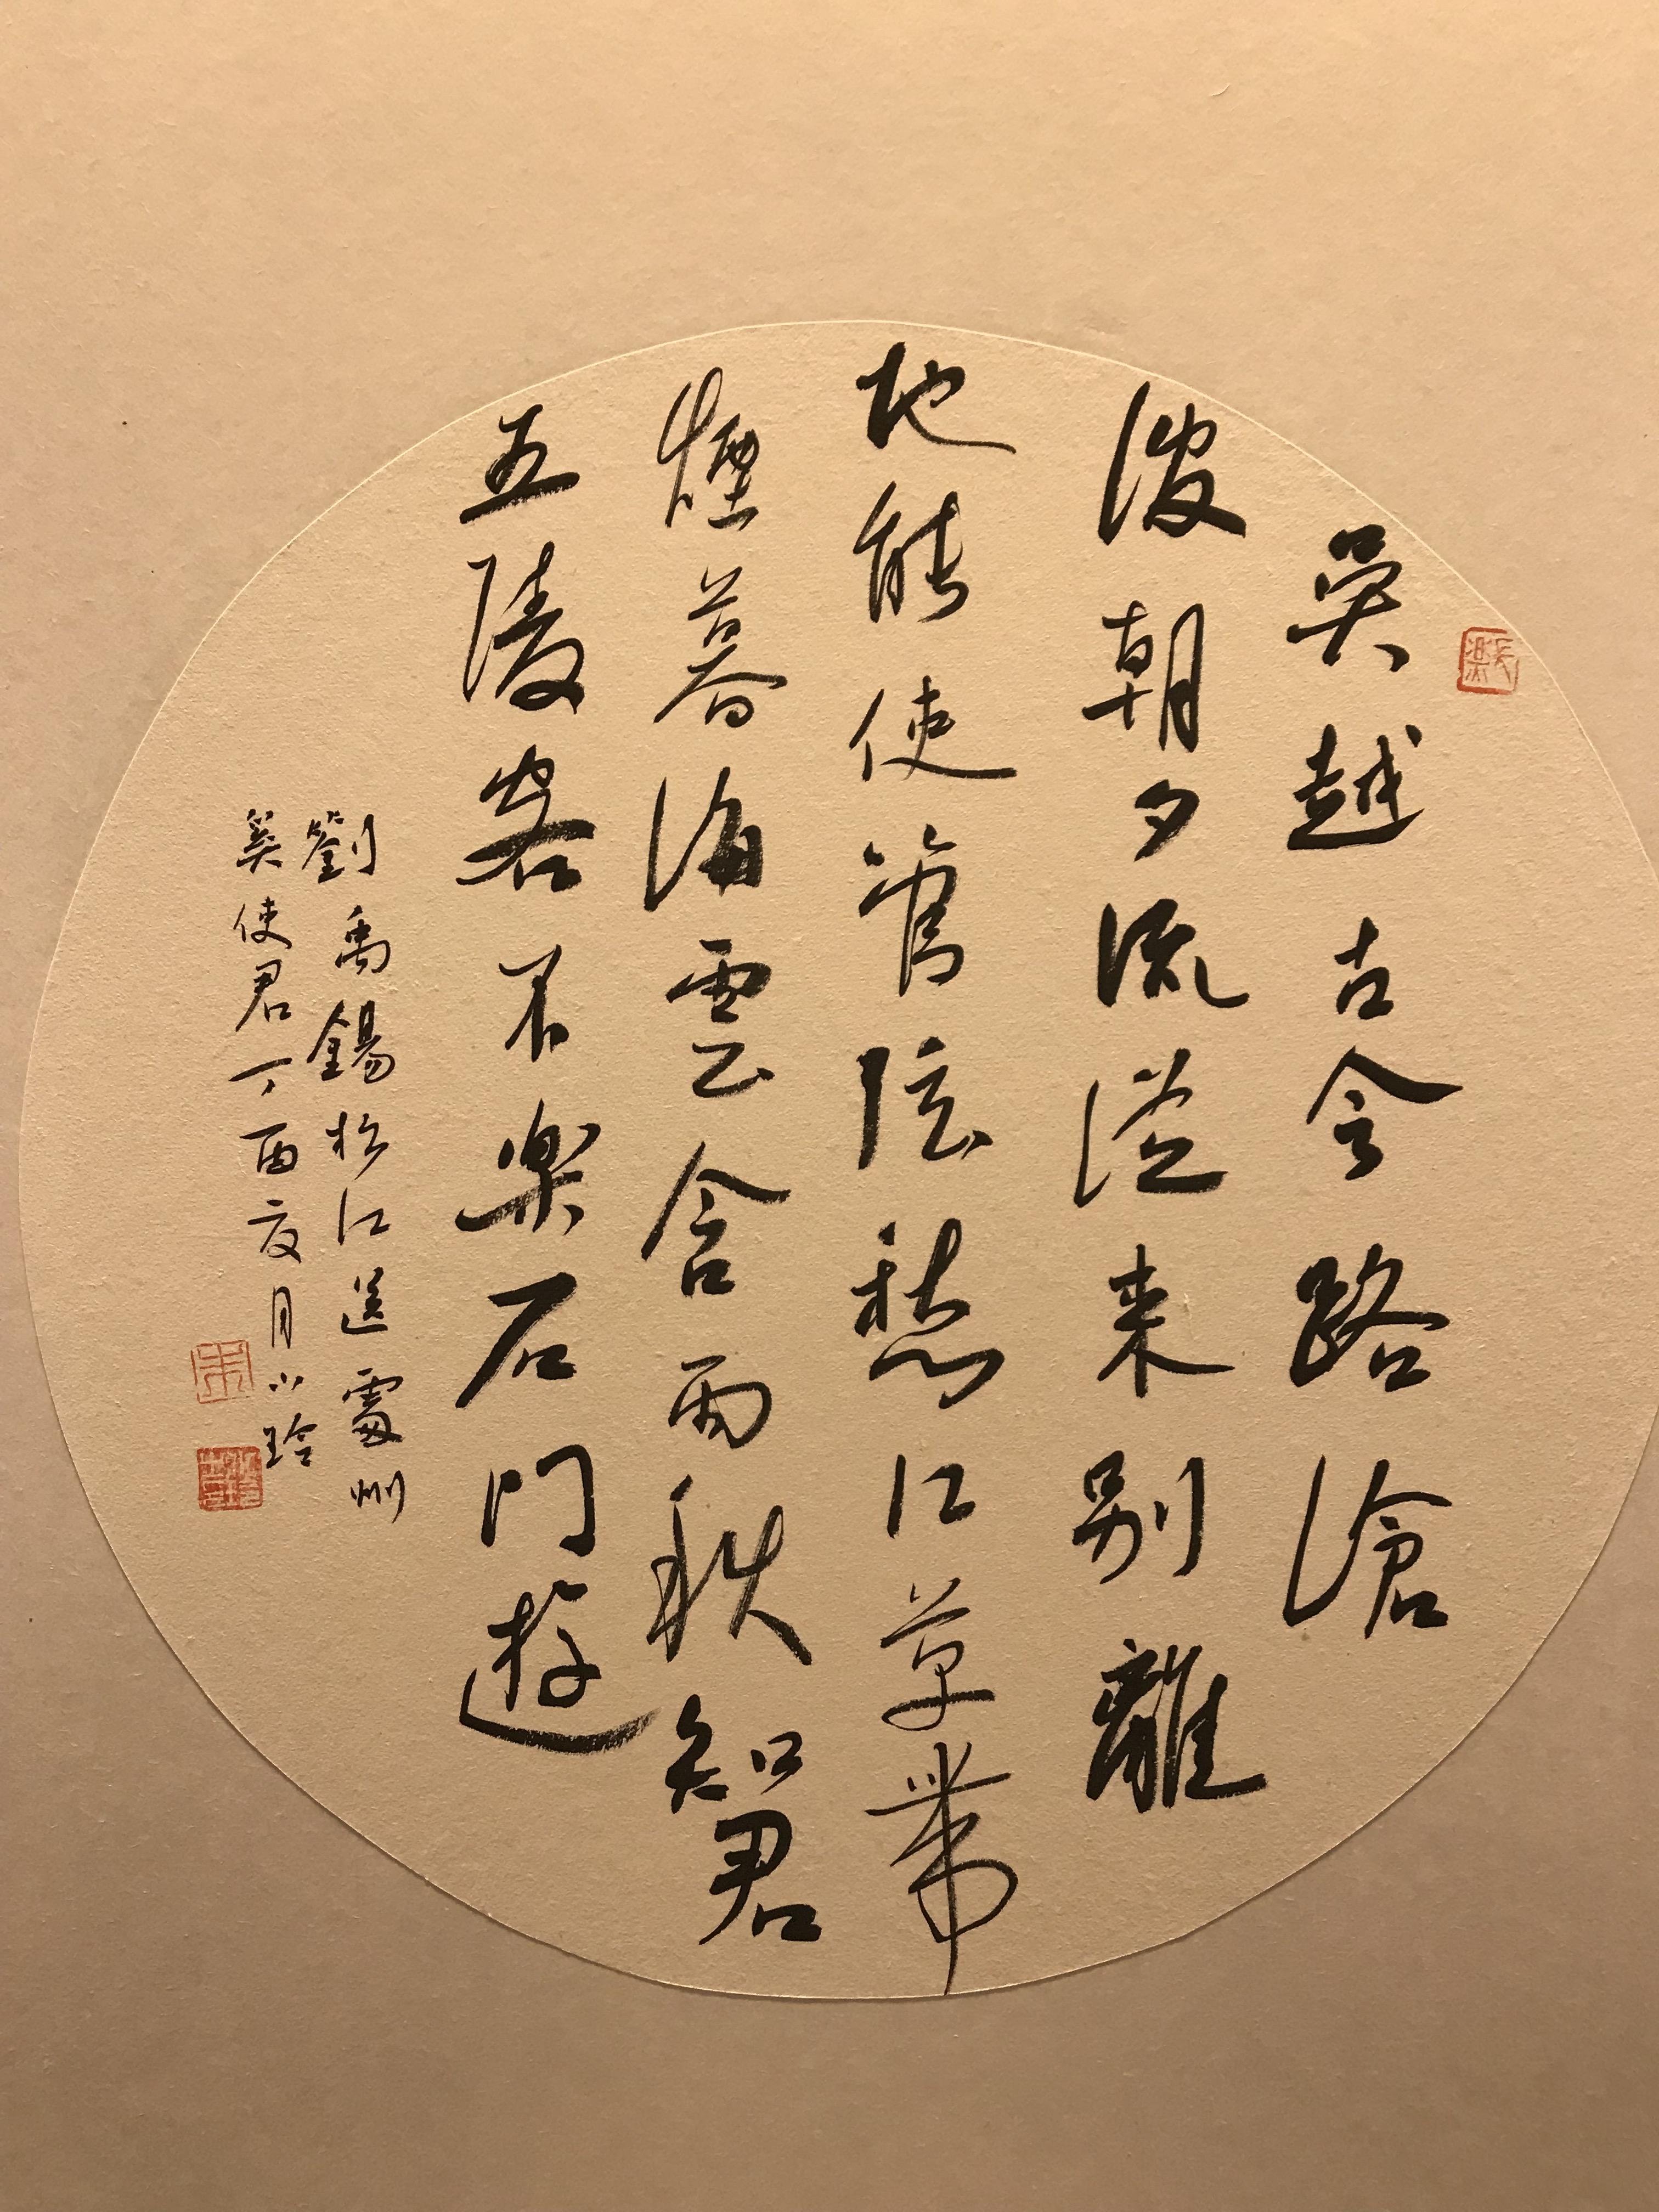 吳越古今路滄
波朝夕流從来别離
地能使管弦愁江草帶
煙暮海雲含雨秋知君
五陵客不樂石門遊
劉禹錫松江送處州
奚使君丁酉夏月小玲
長樂
朱